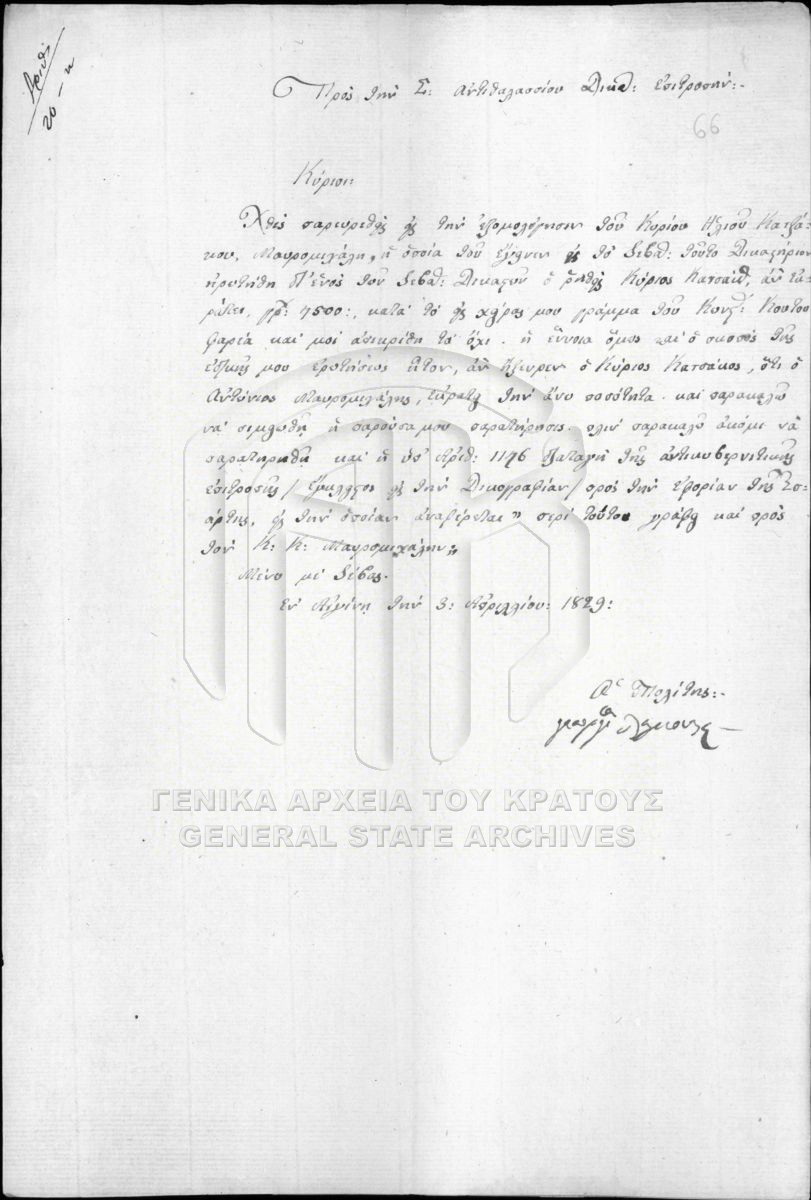 Αριθ:
20 – η
Πρὸς τὴν Σ: ἀντιθαλασσίου Δικασ: ἐπιτροπήν:-
66
Κύριοι:
Χθὲς παρευρεθεὶς εἰς τὴν ἐξομολόγησιν τοῦ Κυρίου Ηλιοῦ Κατζά-
κου, Μαυρομιχάλη, ἡ ὁποία τοῦ ἐγίγνεν εἰς τὸ Σεβασ: τοῦτο Δικαστήριον
ἠρωτήθη δι' ἑνὸς τοῦ Σεβασ: Δικαστοῦ ὁ ῥηθεὶς Κύριος Κατσάκος, ἂν
γρ: 7500:, κατὰ τὸ εἰς χεῖρας μου γράμμα τοῦ Κωνστ: Κουτου
φαρία καὶ μοὶ ἀπεκρίθη τὸ ὄχι. ἡ ἔννοια ὅμως καὶ ὁ σκοπὸς τῆς
ἐδικῆς μου ἐρωτήσεως ἦτον, ἂν ἤξευρεν ὁ Κύριος Κατσάκος, ὅτι ὁ
Ἀντώνιος Μαυρομιχάλης, ἐκράτει τὴν ἄνω ποσότητα. καὶ παρακαλῶ
νὰ σημειωθῇ ἡ παροῦσα μου παρατήρησις. πλὴν παρακαλῶ ἀκόμι νὰ
παρατηρηθῇ καὶ ἡ ὑπ' Ἀριθ: 1146 διαταγὴ τῆς ἀντικυβερνητικῆς
ἐπιτροπῆς / ἔγκλειστος εἰς τὴν Δικογραφίαν / πρὸς τὴν ἐφορίαν τῆς Σπ-
άρτης, εἰς τὴν ὁποίαν ἀναφέρεται „ περὶ τούτου γράφει καὶ πρὸς
τὸν Κ: Κ: Μαυρομιχάλην „
Μένω μὲ σέβας.
Ἐν Αἰγίνῃ τὴν 3: Ἀπριλλίου: 1829:
Ὁ Πολίτης:-
γεωργι
ΓΕΝΙΚΑ ΑΡΧΕΙΑ ΤΟΥ ΚΡΑΤΟΥΣ
GENERAL STATE ARCHIVES